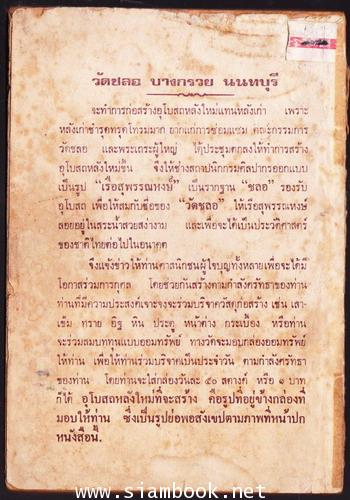 วัดชลอ บางกรวย นนทบุรี
จะทำการก่อสร้างอุโบสถหลังใหม่แทนหลังเก่า เพราะ
หลังเก่าชำรุดทรุดโทรมมาก ยากแก่การซ่อมแซม คณะกรรมการ
วัดชลอ และพระเถระผู้ใหญ่ ได้ประชุมตกลงให้ทำการสร้าง
อุโบสถหลังใหม่ขึ้น จึงให้ช่างสถาปนิกกรมศิลปากรออกแบบ
เป็นรูป "เรือสุพรรณหงษ์" เป็นรากฐาน "ชลอ" รองรับ
อุโบสถ เพื่อให้สมกับชื่อของ "วัดชลอ" ให้เรือสุพรรณหงษ์
ลอยอยู่ในสระน้ำสวยสง่างาม และเพื่อจะได้เป็นประวัติศาสตร์
ของชาติไทยต่อไปในอนาคต
จึงแจ้งข่าวให้ท่านศาสนิกชนผู้ใจบุญทั้งหลายเพื่อจะได้มี
โอกาสร่วมการกุศล โดยช่วยกันสร้างตามกำลังศรัทธาของท่าน
ท่านที่มีความประสงค์เจาะจงจะร่วมบริจาควัสดุก่อสร้าง เช่น เสา-
เข็ม ทราย อิฐ หิน ประตู หน้าต่าง กระเบื้อง หรือท่าน
จะร่วมสมบททุนแบบออมทรัพย์ ทางวัดจะมอบกล่องออมทรัพย์
ให้ท่าน เพื่อให้ท่านร่วมบริจาคเป็นประจำวัน ตามกำลังศรัทธา
ของท่าน โดยท่านจะใส่กล่องวันละ ๕๐ สตางค์ หรือ ๑ บาท
ก็ได้ อุโบสถหลังใหม่ที่จะสร้าง คือรูปที่อยู่ข้างกล่องที่
มอบให้ท่าน ซึ่งเป็นรูปย่อพอสังเขปตามภาพที่หน้าปก
หนังสือนี้.
www.siambook.net